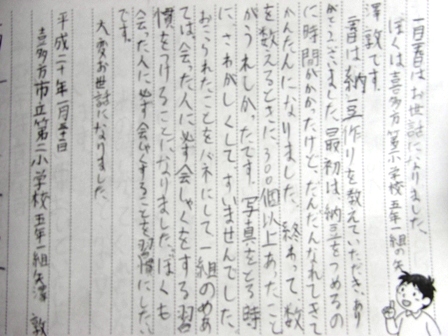 一日目はお世話になりました。
ぼくは喜多方第二小学校五年一組の矢
澤敦です。
一日目は納豆作りを教えていただき、あり
がとうございました。最初は納豆をつめるの
に時間がかかったけど、だんだんなれてき
かんたんになりました。終わって数
を数えるときに、300個以上あったこと
がうれしかったです。写真をとる時
に、さわがしくしてすいませんでした。
おこられたことをバネにして一組のめあ
ては、会った人に必ず会しゃくをする習
慣をつけることになりました。ぼくも
会った人に必ず会しゃくすることを習慣にしたい
です。
大変お世話になりました。
平成二十年一月
喜多方市立第二小学校五年一組矢澤 敦